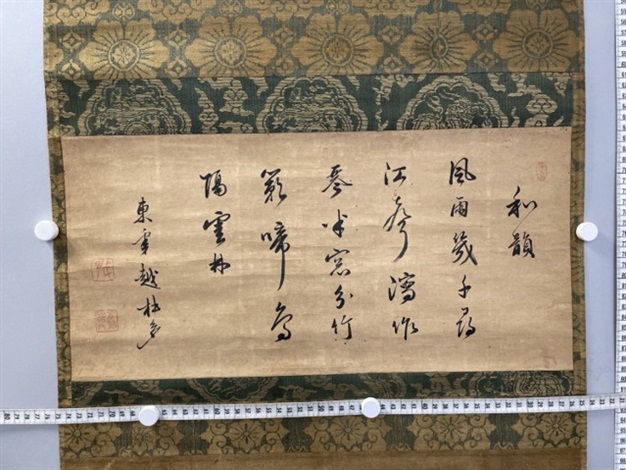 和韻
風雨幾千尋
江聲瀉作
琴半窓分竹
影啼鳥
隔雲林
東皐越杜多